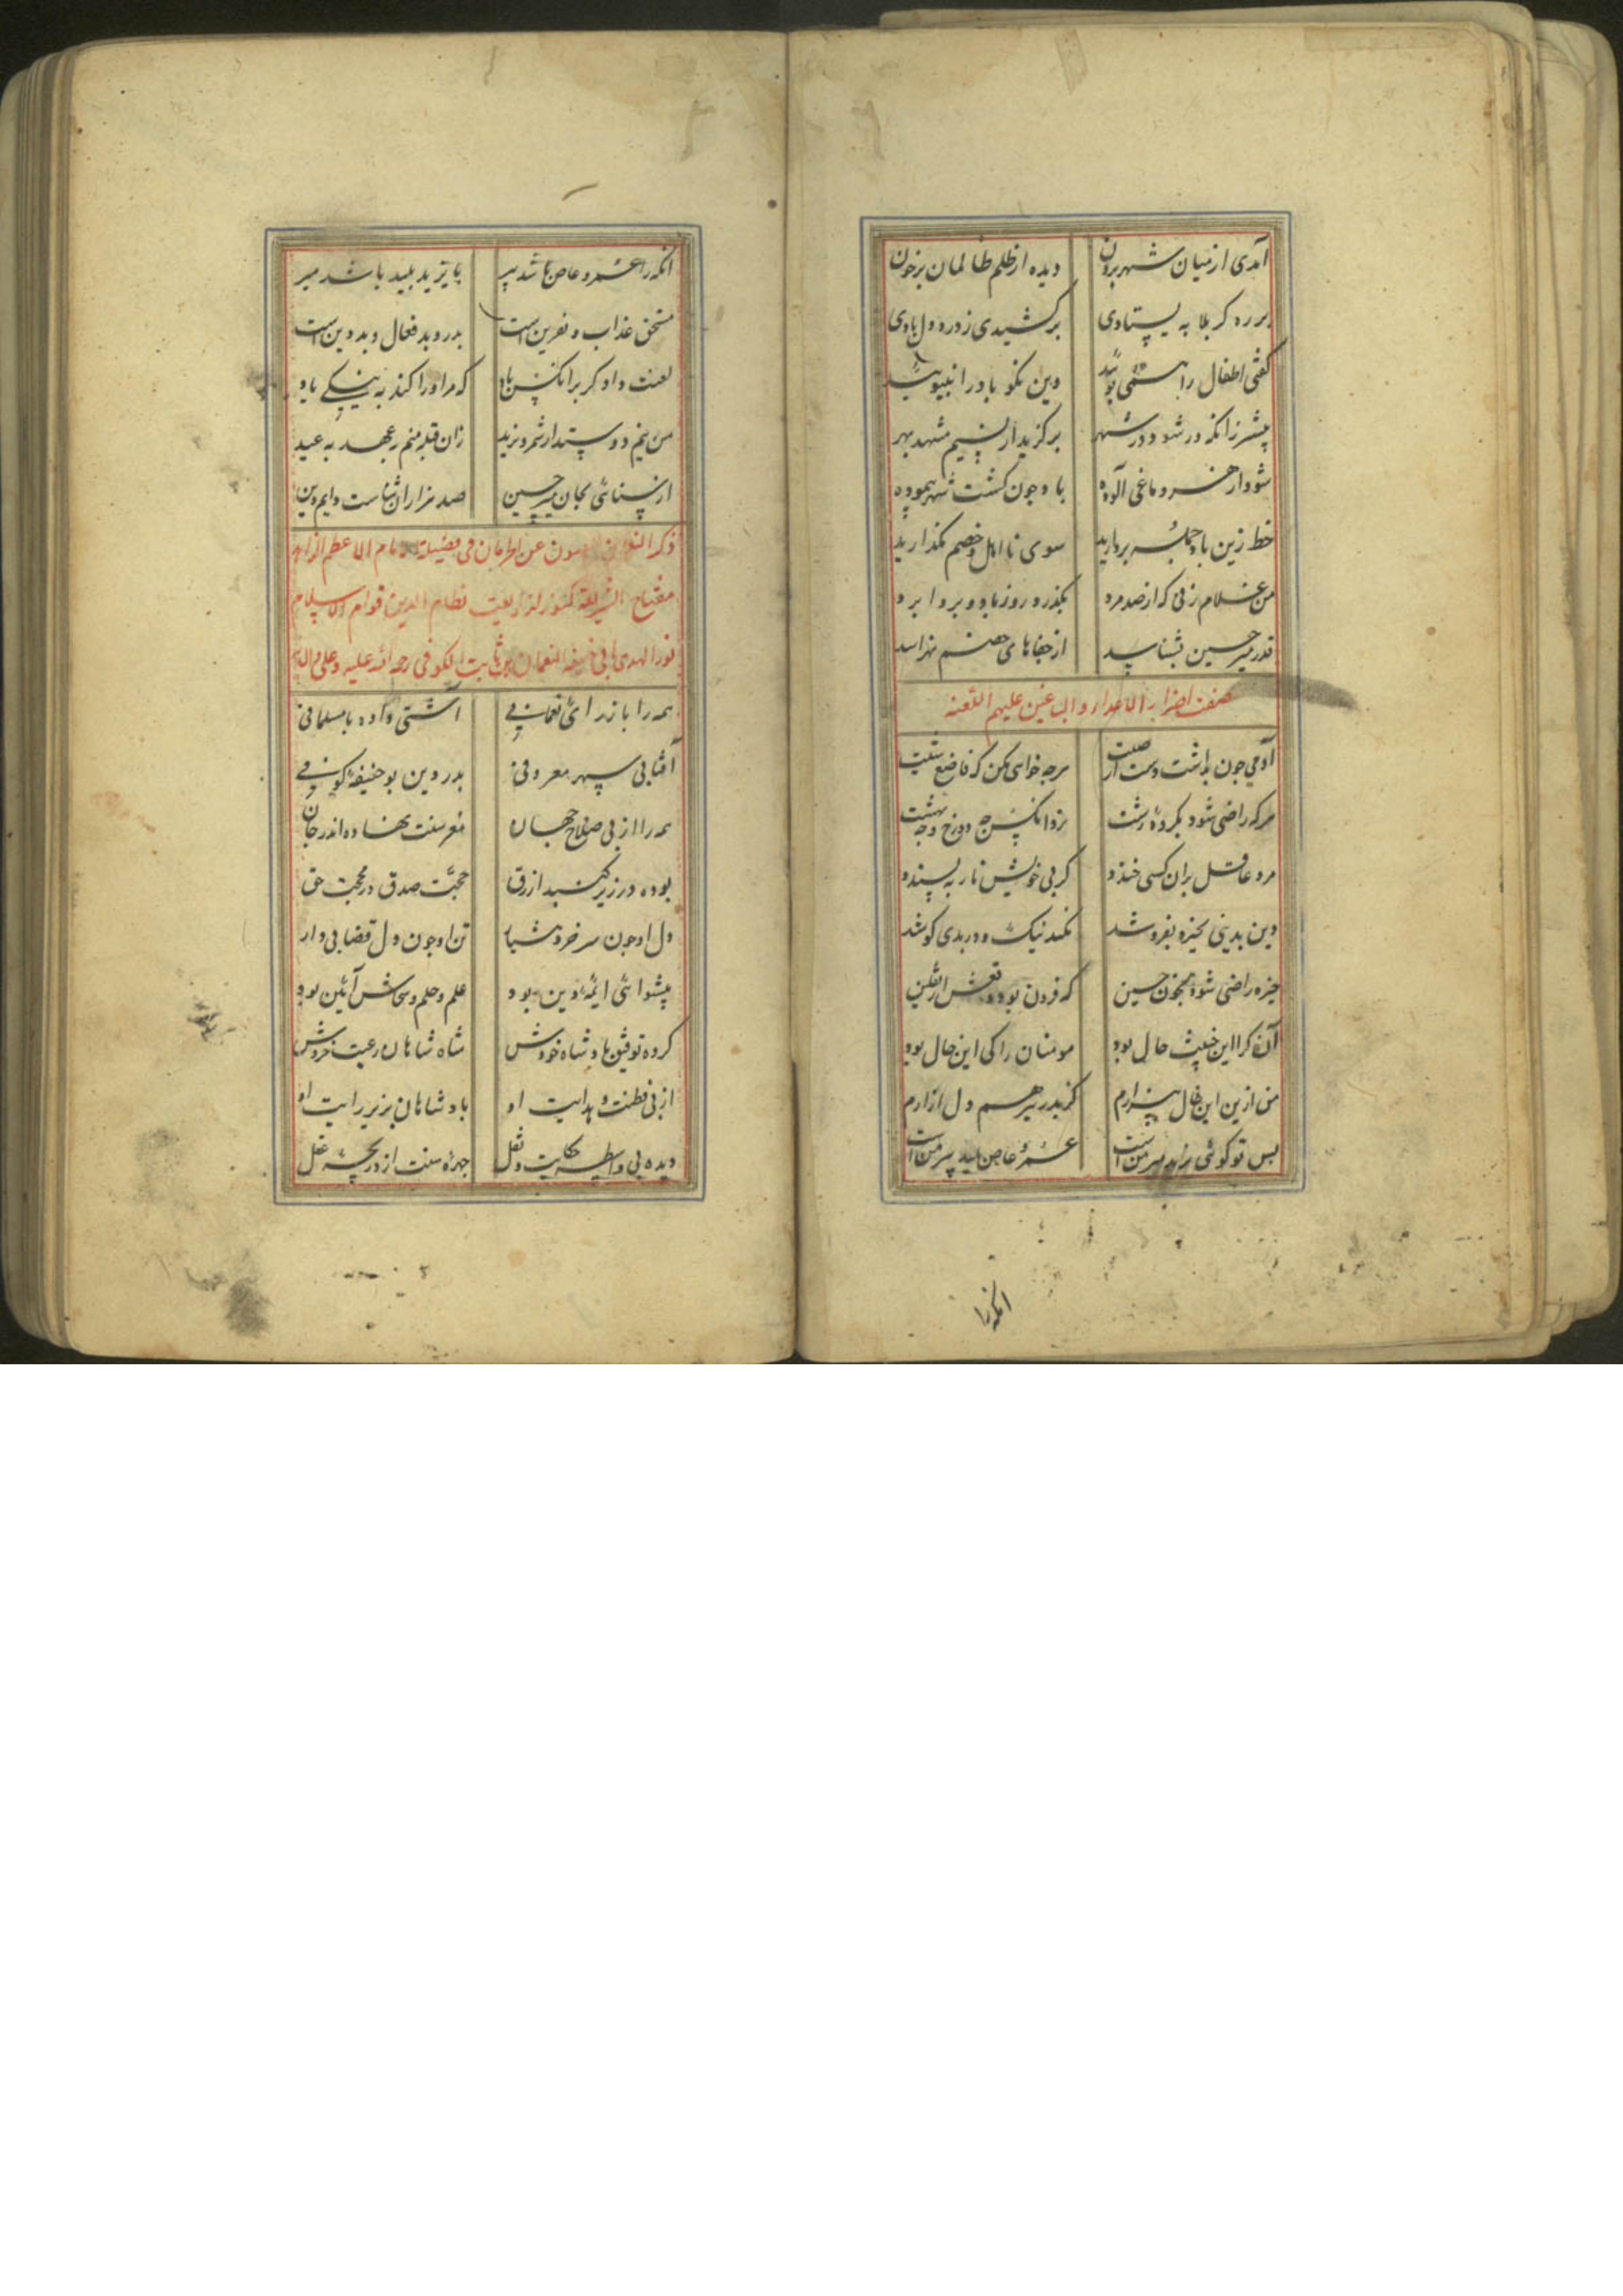 آمدی از میان شهر برون دیده از ظلم ظالمان پرخون
بر ره کربلا به یستادی برکشیدی ز درد دل بادی
گفتی اطفال را همی بویید وین نکو باد را نبیویید
پیشتر زانکه در شود در شهر برگزید از نسیم مشهد بهر
شود از هر دماغی آلوده باد چون گشت شهر پیموده
خط زین باد جمله بردارید سوی نااهل و خصم نگذارید
من غلام زنی که از صد مرد بگذرد روز باد و بردا برد
قدر میر حسین بشناسد از جفاهای خصم نهراسد
صفت اضرار الاعداء والباغین علیهم اللعنه
آدمی چون بداشت دست از صیت هرچه خواهی بکن که فاصنع شئت
هرکه راضی شود بکرده زشت نزد آنکس چه دوزخ و چه بهشت
مرد عاقل بران کسی خندد کز پی خویش نار بپسندد
دین بدینی بخیره بفروشد نکند نیک و در بدی کوشد
خیره راضی شود بخون حسین که فزون بود وقعش از ثقلین
آنکه را این خبیث خال بود مومنان را کی این حال بود
من ازین ابن خال بیزارم کز پدر نیز هم دل آزارم
پس تو گوئی یزید میر من است عمرو عاص پلید پیر من است
انکه را
انکه را عمرو عاص باشد پیر یا یزید پلید باشد میر
مستحق عذاب و نفرین است بد ره و بد فعال و بد دین است
لعنت دادگر بر آنکس باد که مر او را کند به نیکی یاد
من نیم دوستدار شمر و یزید زان قبیله منم بعهد بعید
از سنائی بجان میر حسین صد هزاران ثناست دایم دین
ذکر النعمان فی فضیلة الامام الاعظم
مفتاح الشریعه نظام الدین قوام الاسلام
نور الهدی ابی حنیفه النعمان بن ثابت الکوفی رحمه الله علیه
همه را باز رای نعمانی آشتی داده با مسلمانی
آفتابی سپهر معروفی بدر دین بو حنیفه کوفی
همه را از پی صلاح جهان مغز سنت نهاده اندر جان
بوده در زیر گنبد ازرق حجت صدق در محبت حق
دل او چون سر خرد هشیار تن او چون دل قضا بیدار
پیشوای ائمه دین بود علم و حلم و سخاش آئین بود
کرده توفیق پادشاه خودش شاه شاهان رعیت خردش
از پی فطنت و هدایت او پادشاهان بزیر رایت او
دیده بی واسطه حکایت و نقل چهره سنت از دریچه عقل